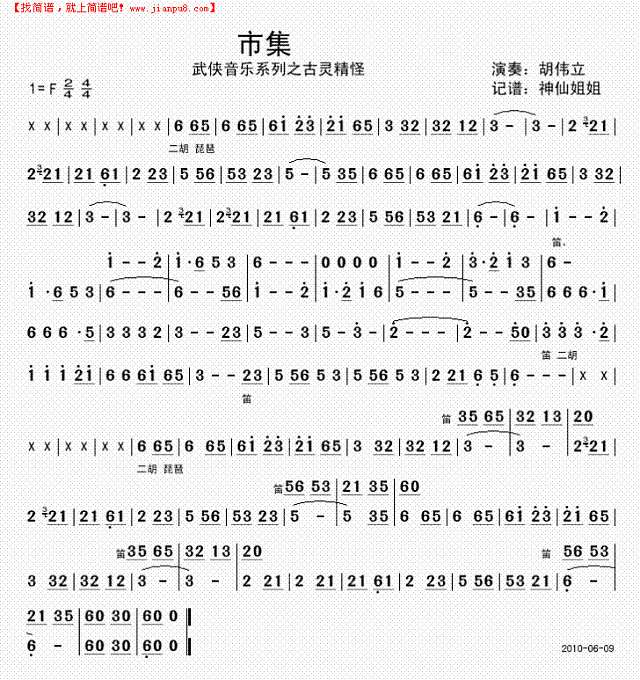 【找简谱，就上简谱吧！www.jianpu8.com】
市集
武侠音乐系列之古灵精怪
演奏：胡伟立
1=F 2/4 4/4
记谱：神仙姐姐
x x | x x | x x | x x | 6 65 | 6 65 | 6i 23 | 2i 65 | 3 32 | 32 12 | 3 - | 3 - | 2 321
二胡 琵琶
2321 | 21 61 | 2 23 | 5 56 | 53 23 | 5 - | 5 35 | 6 65 | 6 65 | 6i 23 | 2i 65 | 3 32
32 12 | 3 - | 3 - | 2 321 | 2321 | 21 61 | 2 23 | 5 56 | 53 23 | 6 - | 6 - | i - - 2
笛、
i - - 2 | i · 6 5 3 | 6 - - - | 0 0 0 0 | i - - 2 | 3 · 2 i 3 | 6 -
i · 6 5 3 | 6 - - - | 6 - - 56 | i - - 2 | i · 2 i 6 | 5 - - - | 5 - - 35 | 6 6 6 · i
6 6 6 · 5 | 3 3 3 2 | 3 - - 23 | 5 - 3 5 | 2 - - - | 2 - - 50 | 3 3 3 · 2
笛 二胡
i i i 2i | 6 6 6i 65 | 3 - - 23 | 5 56 53 5 | 56 53 5 3 | 2 21 6 5 | 6 - - - | x x
笛
笛 35 65 | 32 13 | 20
x x | x x | x x | x x | 6 65 | 6 65 | 6i 23 | 2i 65 | 3 32 | 32 12 | 3 - | 3 - | 2 321
二胡 琵琶
笛 56 53 | 21 35 | 60
2 321 | 21 61 | 2 23 | 5 56 | 53 23 | 5 - | 5 35 | 6 65 | 6 65 | 6i 23 | 2i 65
笛 35 65 | 32 13 | 20
笛 56 53
3 32 | 32 12 | 3 - | 3 - | 2 21 | 21 21 | 21 61 | 2 23 | 5 56 | 53 23 | 6 -
21 35 | 60 30 | 60 0
6 - | 60 30 | 60 0
2010-06-09